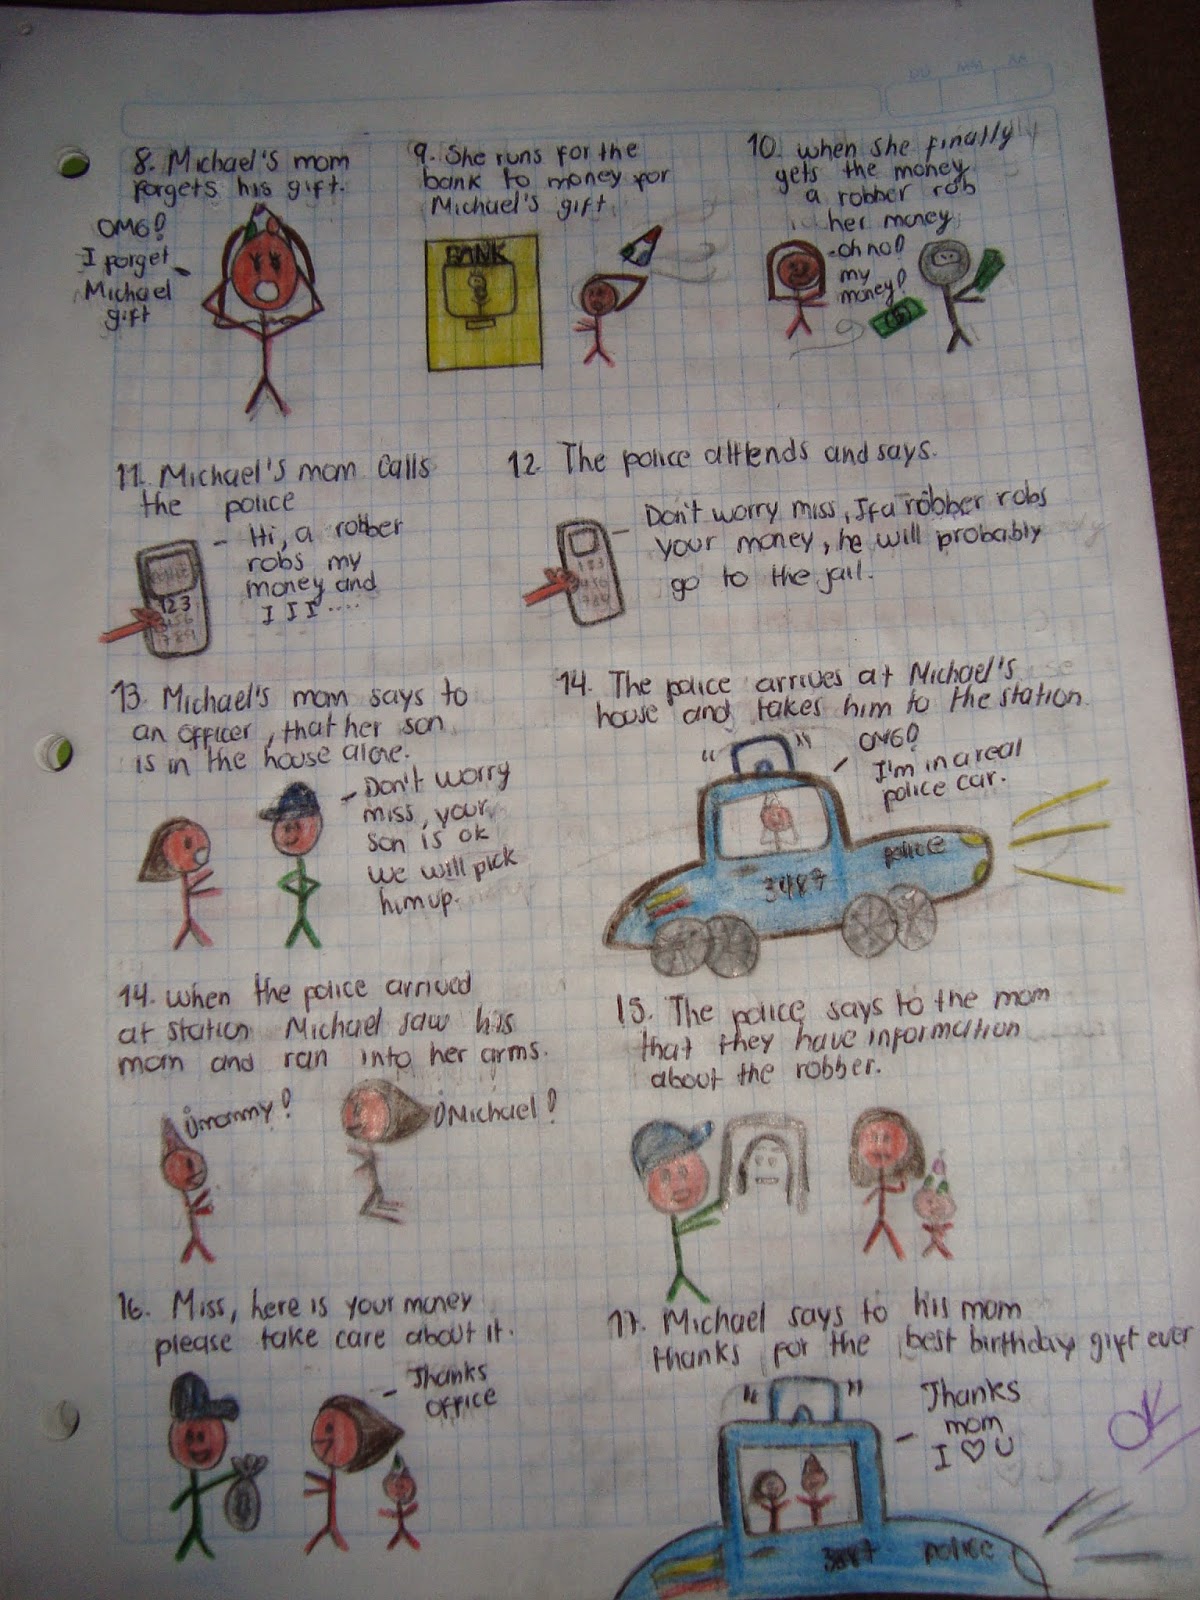 DD MM AA
8. Michael's mom
forgets his gift.
OMG!
I forget
Michael
gift
9. She runs for the
bank to money for
Michael's gift
BANK
10. when she finally
gets the money
a robber rob
her money
- oh no!
my
money!
11. Michael's mom calls
the police
- Hi, a robber
robs my
money and
I I I ....
123
456
12. The police attends and says.
- Don't worry miss, If a robber robs
your money, he will probably
go to the jail.
123
456
789
13. Michael's mom says to
an officer, that her son
is in the house alone.
- Don't worry
miss, your
son is ok
we will pick
him up.
14. The police arrives at Michael's
house and takes him to the station.
OMG!
I'm in a real
police car.
police
3487
14. when the police arrived
at station Michael saw his
mom and ran into her arms.
¡mommy!
¡Michael!
15. The police says to the mom
that they have information
about the robber.
16. Miss, here is your money
please take care about it.
- Thanks
office
17. Michael says to his mom
thanks for the best birthday gift ever
- Thanks
mom
I ♡ U
OK
3487 police